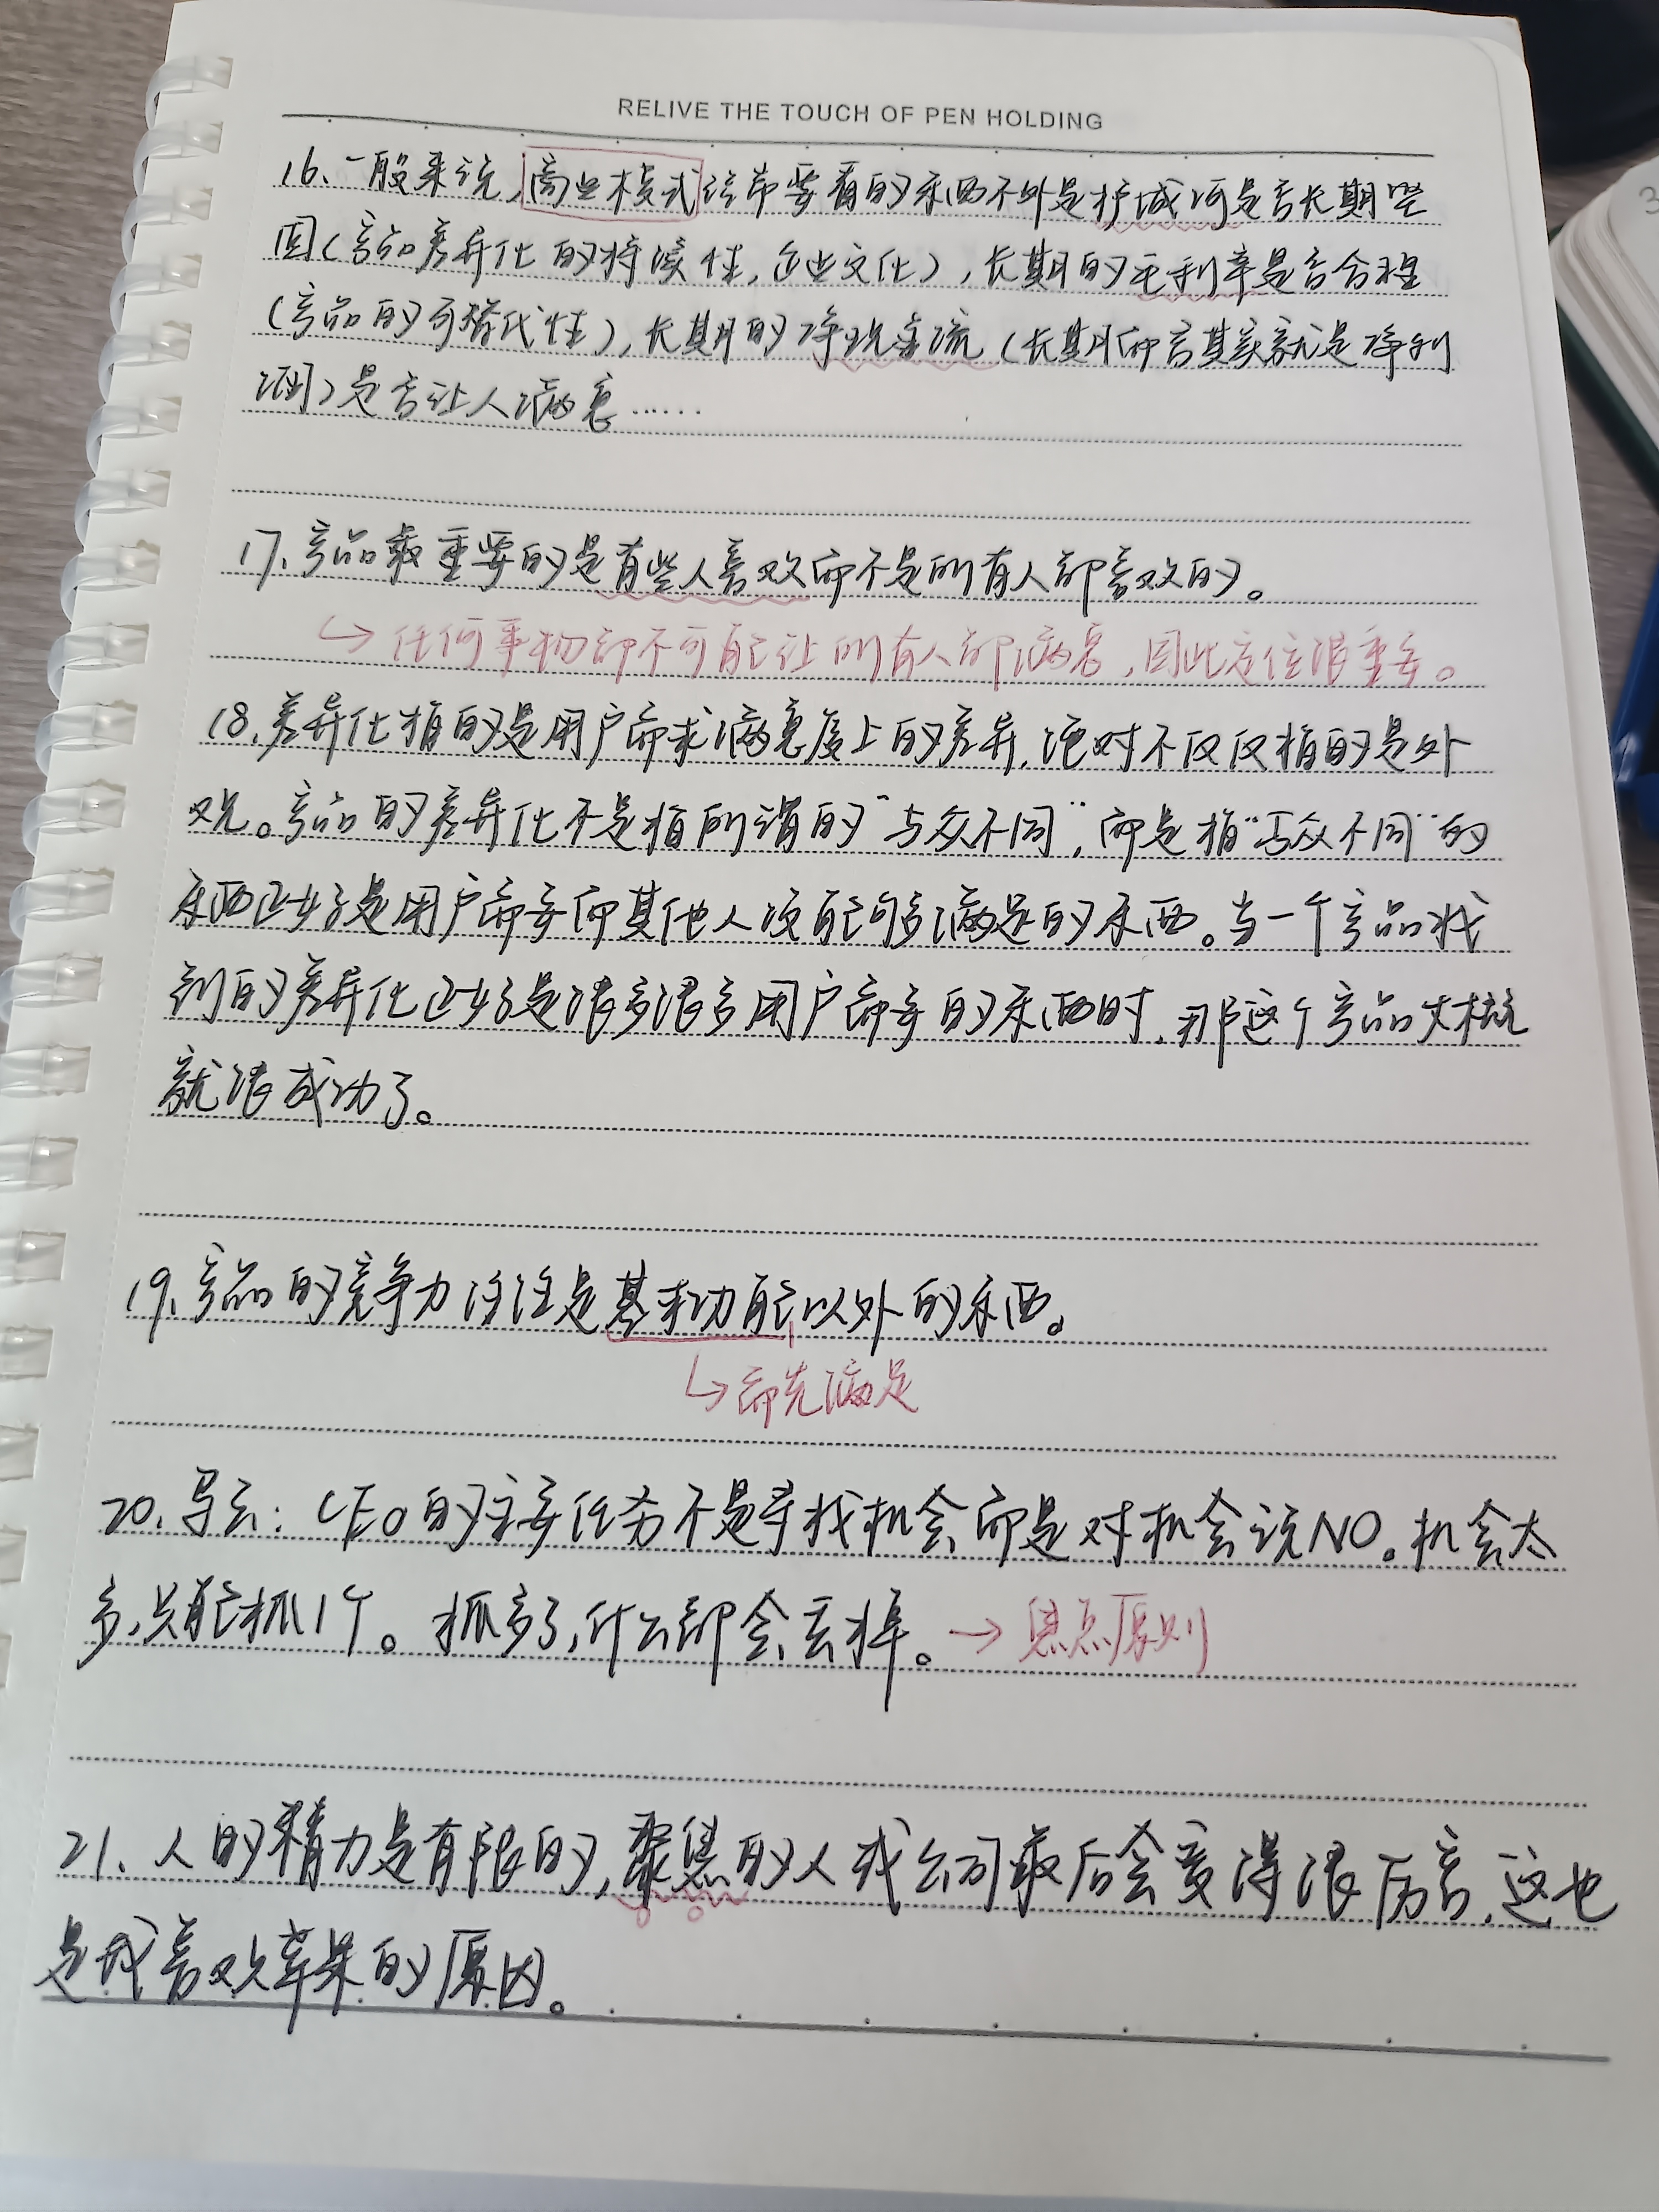 RELIVE THE TOUCH OF PEN HOLDING
16、一般来说,商业模式语节要看的东西不外是护城河是否长期坚
固(产品差异化的持续性,企业文化),长期的毛利率是否合理
(产品的可替代性),长期的净现金流(长期而言其实就是净利
润)是否让人满意……
17、产品最重要的是有些人喜欢而不是所有人都喜欢的。
↳任何事物都不可能让所有人都满意,因此定位很重要。
18、差异化指的是用户需求满意度上的差异,绝对不仅仅指的是外
观。产品的差异化不是指所谓的“与众不同”,而是指“与众不同”的
东西正好是用户需要而其他人没能够满足的东西。当一个产品找
到的差异化正好是很多很多用户需要的东西时,那这个产品大概
就很成功了。
19、产品的竞争力往往是基本功能以外的东西。
↳都先满足
20、马云:CEO的主要任务不是寻找机会,而是对机会说NO。机会太
多,只能抓1个。抓多了,什么都会丢掉。→焦点原则
21、人的精力是有限的,聚焦的人或公司最后会变得很厉害,这也
是我喜欢苹果的原因。